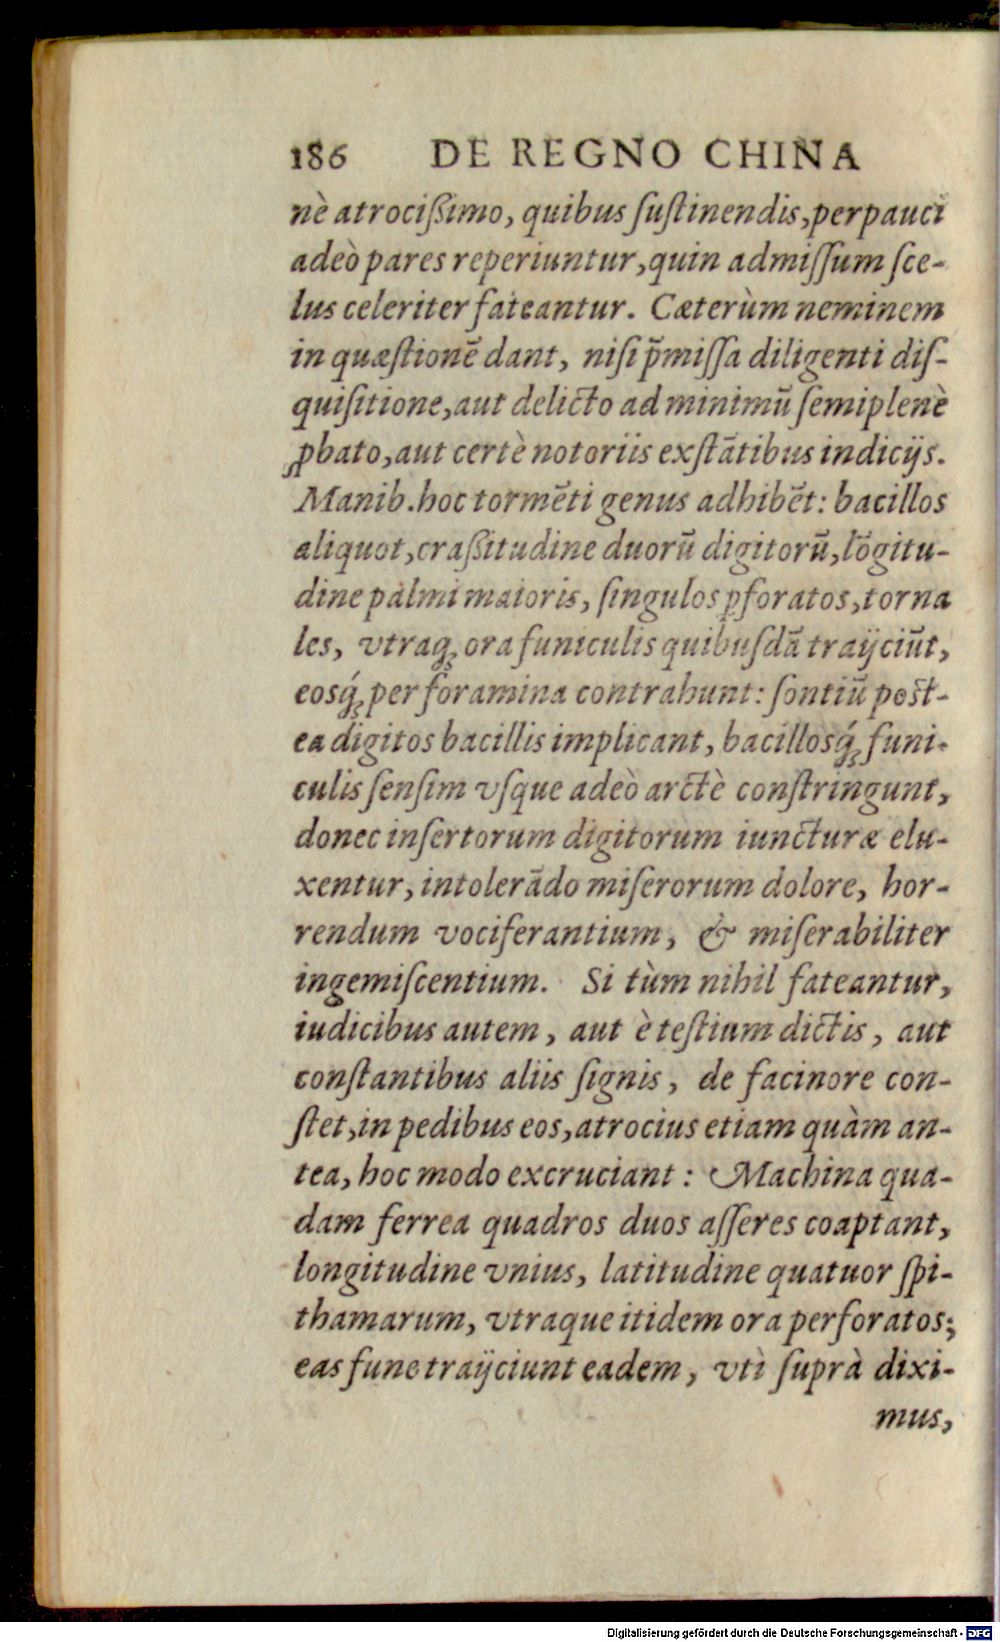 186 DE REGNO CHINA
nè atrocißimo, quibus ſuſtinendis, perpauci
adeò pares reperiuntur, quin admiſſum ſce-
lus celeriter fateantur. Cæterùm neminem
in quæſtionē dant, niſi p̄miſſa diligenti diſ-
quiſitione, aut delicto ad minimū ſemiplenè
ꝓbato, aut certè notoriis exſtātibus indicijs.
Manib. hoc tormēti genus adhibēt: bacillos
aliquot, craßitudine duorū digitorū, lōgitu-
dine palmi maioris, ſingulos ꝑforatos, torna
les, vtraq; ora funiculis quibuſdā traijciūt,
eosq́; per foramina contrahunt: ſontiū poſt-
ea digitos bacillis implicant, bacillosq́; funi-
culis ſenſim vſque adeò arctè conſtringunt,
donec inſertorum digitorum iuncturæ elu-
xentur, intolerādo miſerorum dolore, hor-
rendum vociferantium, & miſerabiliter
ingemiſcentium. Si tùm nihil fateantur,
iudicibus autem, aut è teſtium dictis, aut
conſtantibus aliis ſignis, de facinore con-
ſtet, in pedibus eos, atrocius etiam quàm an-
tea, hoc modo excruciant: Machina qua-
dam ferrea quadros duos aſſeres coaptant,
longitudine vnius, latitudine quatuor ſpi-
thamarum, vtraque itidem ora perforatos;
eas fune traijciunt eadem, vtì ſuprà dixi-
mus,
Digitalisierung gefördert durch die Deutsche Forschungsgemeinschaft - DFG